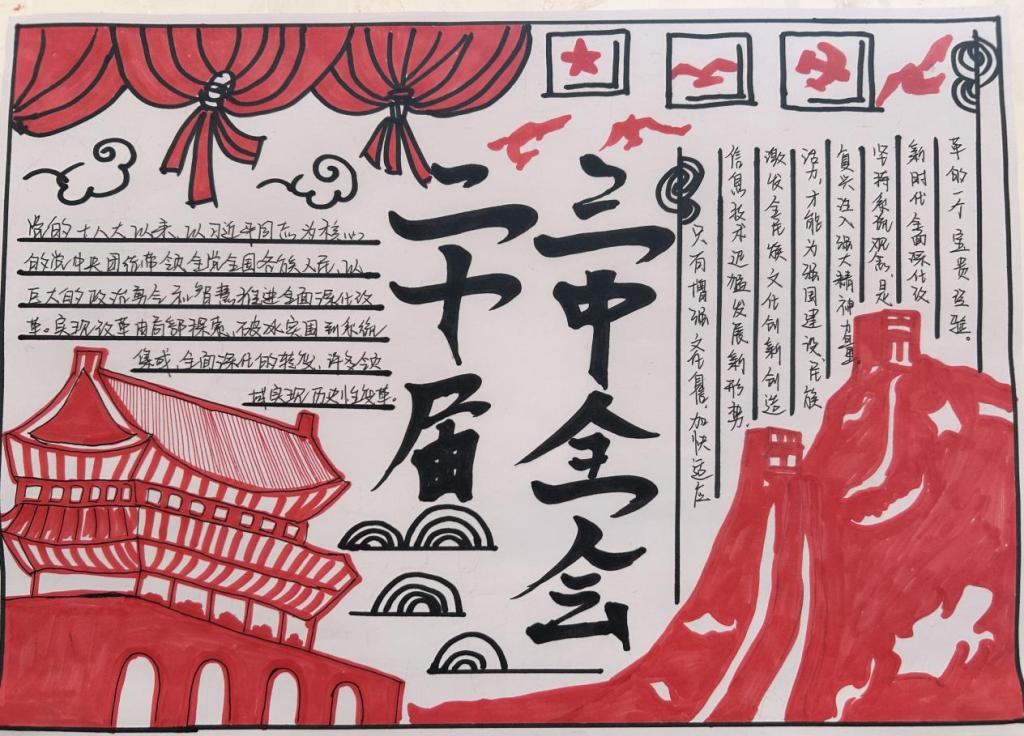 二十届
三中全会
党的十八大以来,以习近平同志为核心
的党中央团结带领全党全国各族人民,以
巨大的政治勇气和智慧推进全面深化改
革。实现改革由局部探索、破冰突围到系统
集成、全面深化的转变,许多领
域实现历史性变革。
革的一个宝贵经验。
新时代全面深化改
坚持系统观念,是
复兴注入强大精神力量。
活力,才能为强国建设、民族
激发全民族文化创新创造
信息技术迅猛发展新形势,
只有增强文化自信,加快适应